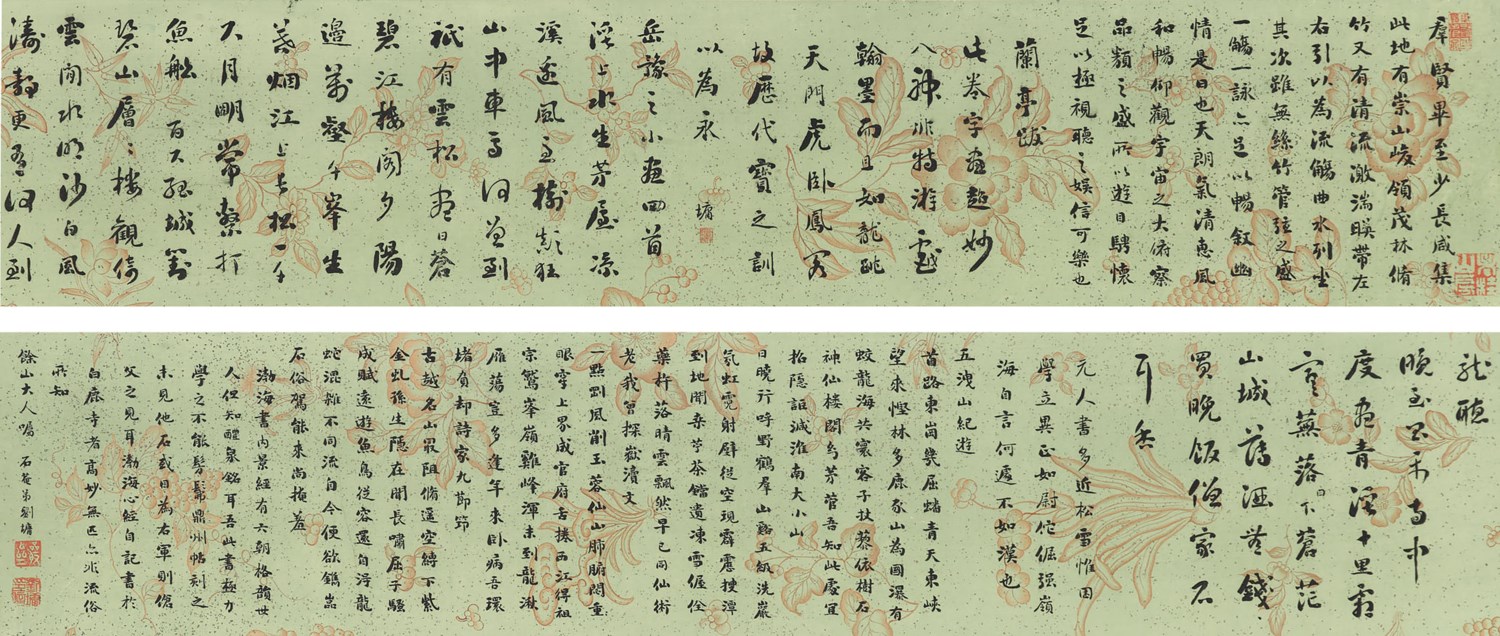 羣賢畢至少長咸集
此地有崇山峻領茂林脩
竹又有清流激湍暎帶左
右引以為流觴曲水列坐
其次雖無絲竹管弦之盛
一觴一詠亦足以暢敘幽
情是日也天朗氣清惠風
和暢仰觀宇宙之大俯察
品類之盛所以遊目騁懷
足以極視聽之娛信可樂也
蘭亭跋
此卷字畫超妙
八神非特游戲
翰墨而且知龍跳
天門虎臥鳳閣
故歷代寶之訓
以為永 墉
岳豫之小畫四首
溪上水生茅屋凉
溪迷風急樹欹狂
山中車馬何曾到
祇有雲松盡日蒼
碧江樓閣夕陽
邊萬壑千峯生
暮烟江上長松一千
尺月明常繫打
魚船百尺孤城對
碧山層〻樓觀倚
雲間水明沙白風
濤靜更有何人到
聽
晚至寺中
度盡青溪十里霜
寒蕪落日下蒼茫
山城舊酒無錢
買晚飯僧家石
耳香
元人書多近松雪惟因
學立異正如尉佗倔強嶺
海自言何遽不如漢也
五洩山紀遊
首路東崗幾屈蟠青天東峽
望來慳林多鹿豕山為國瀑有
蛟龍海共寰客子扶藜依樹石
神仙樓閣多茅菅吾知此處宜
招隱詎減淮南大小山
日曉行呼野鶴羣山谿五級洗巖
氛虹霓射壁從空現霹靂搜潭
到地聞桒苧茶鐺遺凍雪偓佺
藥杵落晴雲飄然早已同仙術
老我曾探嶽瀆文
一點剛風削玉蓉仙山肺腑閟重
眼穿上界成官府舌捲西江得祖
宗鷲峯嶺雞峰渾未到龍湫
雁蕩豈多逢年來臥病吾環
堵負却詩家九節筇
古越名山最阻脩遥空縛下紫
金虬孫生隱在聞長嘯屈子騷
成賦遠遊魚鳥從容還自淂龍
蛇混雜不同流自今便欲鐫嵓
石俗駕能來尚掩羞
渤海書內景經有六朝格韻世
人但知醴泉銘耳吾此書極力
學之不能髣髴鼎州帖刻之
未見他石或目為右軍則傖
父之見耳渤海心經自記書於
白鹿寺者高妙無匹亦非流俗
所知
餘山大人囑 石菴弟劉墉